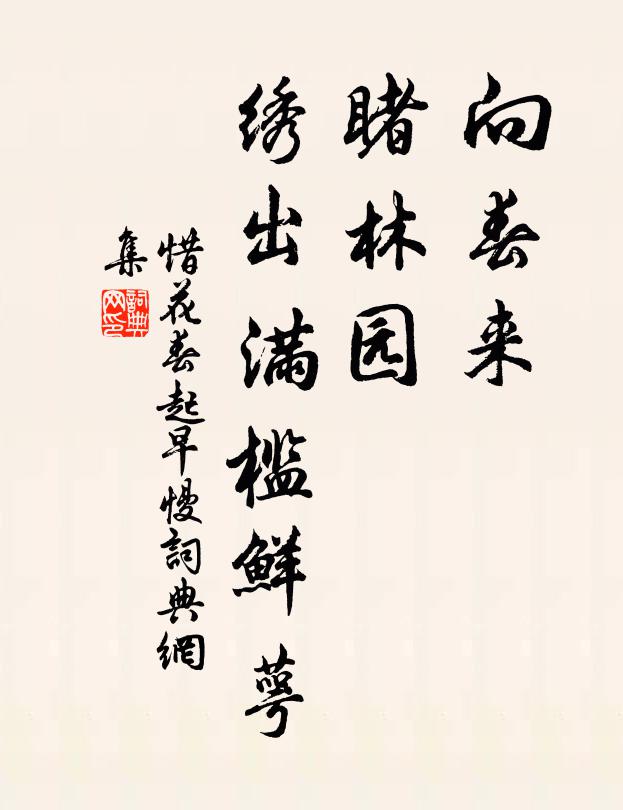 向春来
睹林园
绣出满槛鲜萼
惜花春起早慢詞典網
集
詞典
网印